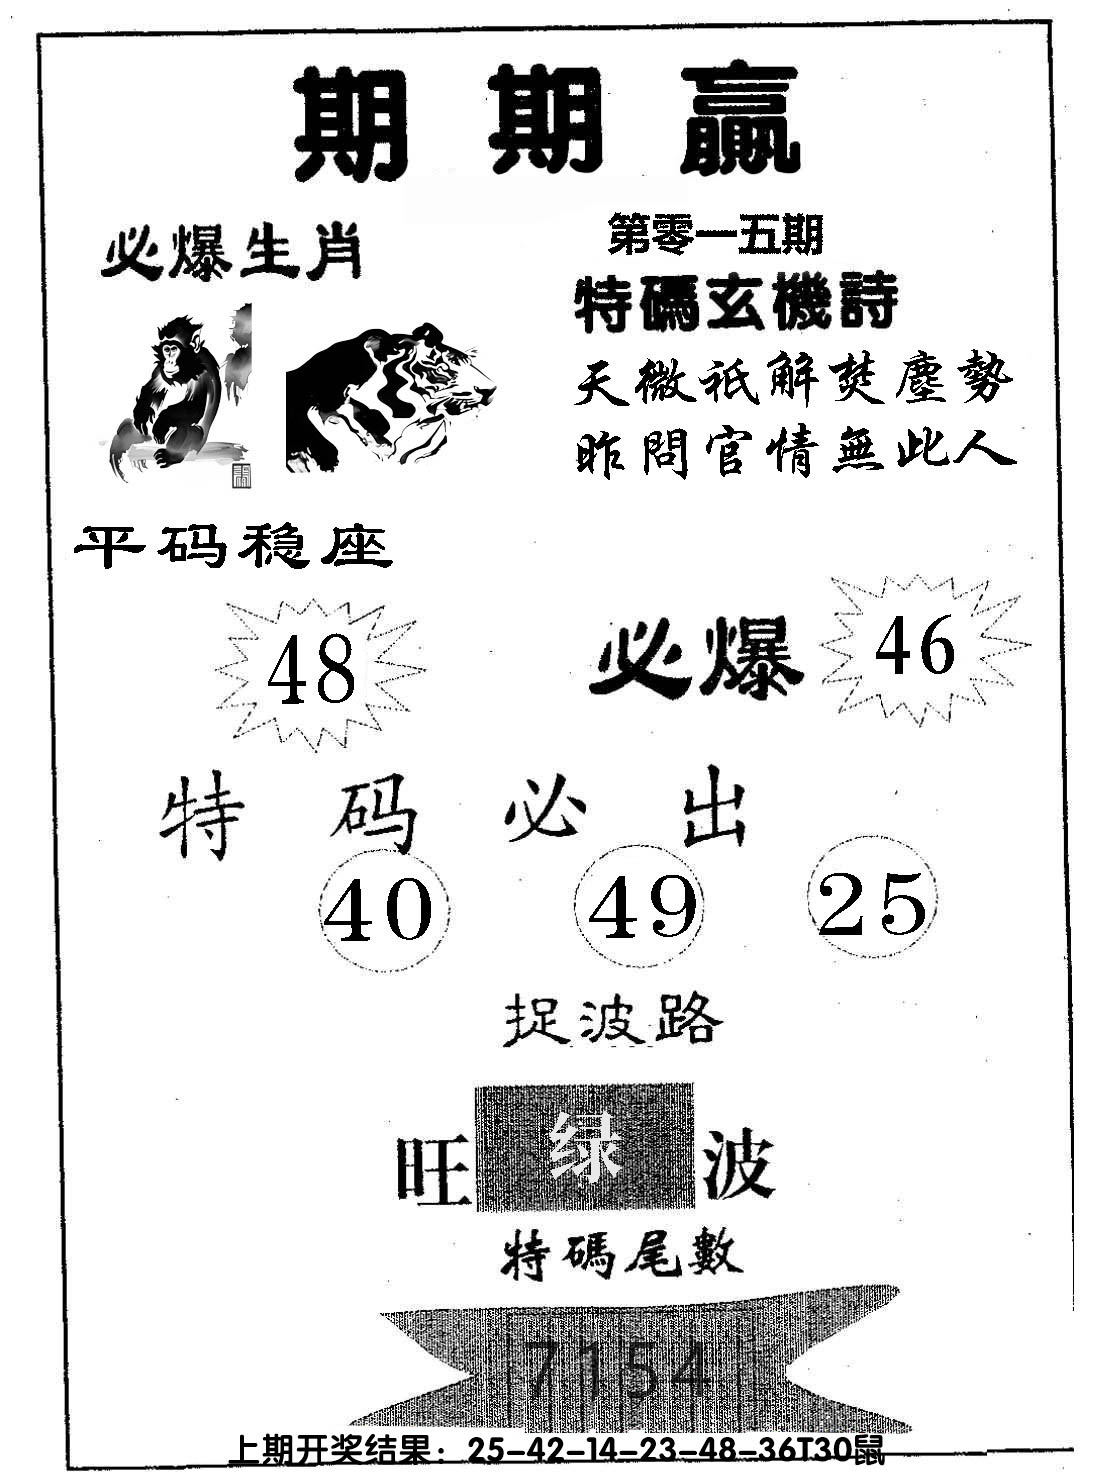 期期贏
必爆生肖
第零一五期
特碼玄機詩
天微祇解焚塵勢
昨問官情無此人
平码稳座
48
必爆 46
特码必出
40 49 25
捉波路
旺 绿 波
特碼尾數
7154
上期开奖结果：25-42-14-23-48-36T30鼠